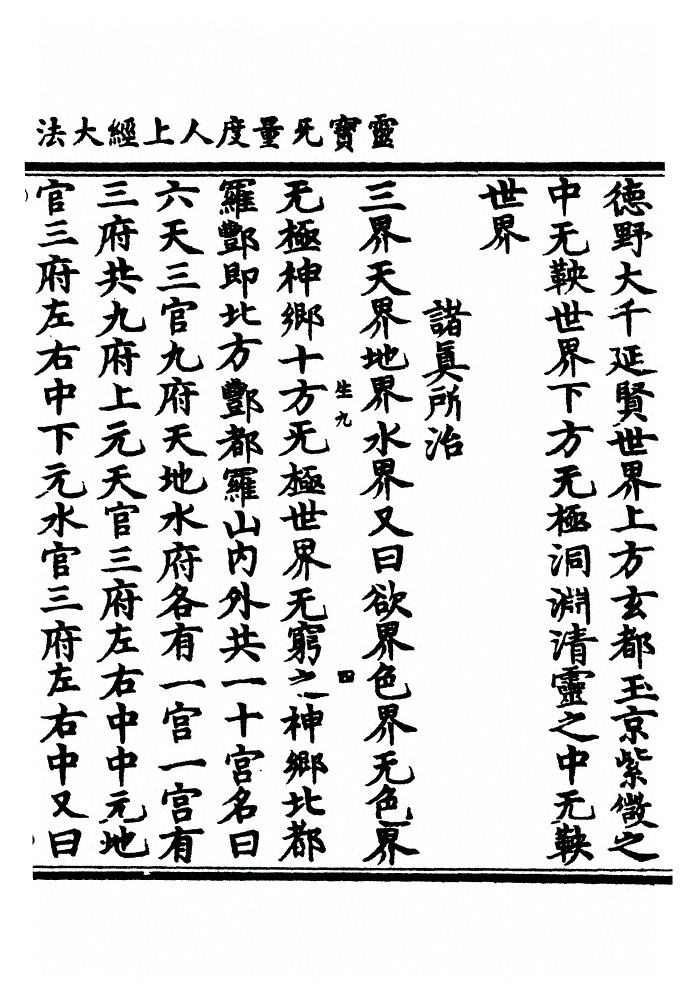 靈寶无量度人上經大法
德野大千延賢世界上方玄都玉京紫微之
中无鞅世界下方无極洞淵清靈之中无鞅
世界
諸眞所治
三界天界地界水界又曰欲界色界无色界
生九
四
无極神鄉十方无極世界无窮之神鄉北都
羅酆即北方酆都羅山內外共一十宮名曰
六天三官九府天地水府各有一宮一宮有
三府共九府上元天官三府左右中中元地
官三府左右中下元水官三府左右中又曰